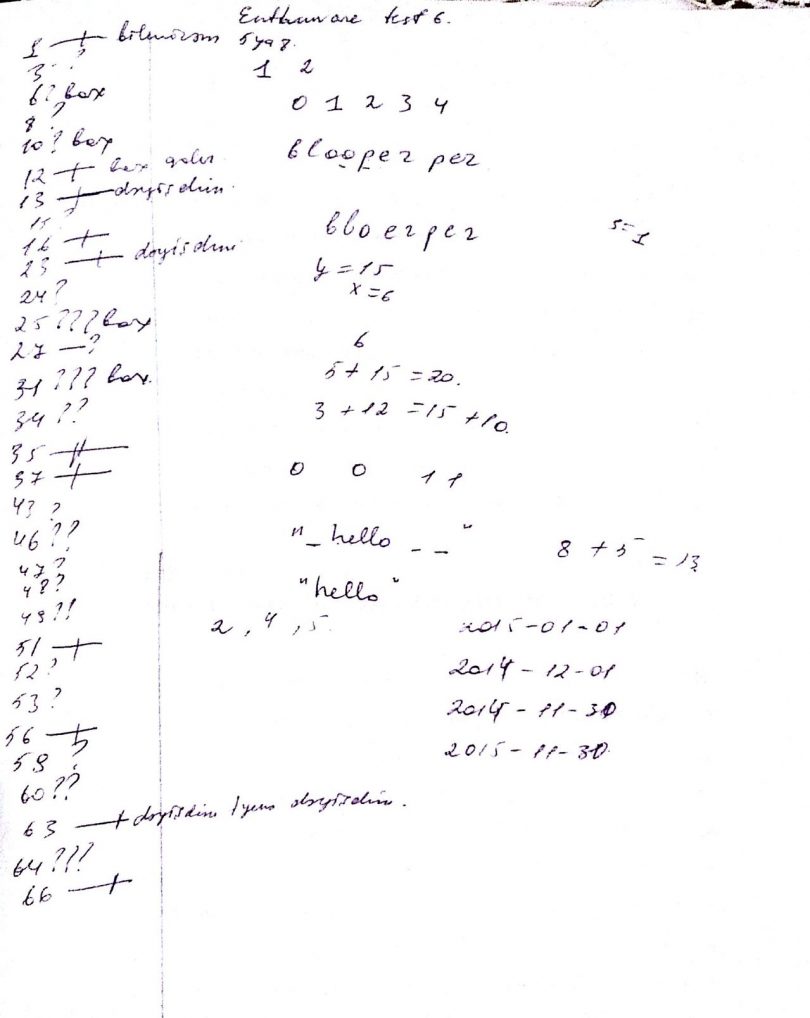 Enthuware test 6.
1 —+ bilmirəm 5 yaz.
3 ?
1 2
6? bax
0 1 2 3 4
8 ?
10? bax
blooper per
12 —+ bax gəlir
13 —+ dəyişdim.
15 ?
16 —+
bloerper
s=1
23 —+ dəyişdim
y = 15
24?
x = 6
25 ??? bax
27 —?
6
31 ??? bax.
5 + 15 = 20.
34 ??
3 + 12 = 15 + 10.
35 —++
37 —+
0 0 11
43 ?
46 ??
"_hello _ _"
8 + 5 = 13
47?
48?
"hello"
49?!
2, 4, 5.
2015-01-01
51 —+
52?
2014-12-01
53?
2014-11-30
56 —+
2015-11-30
59 ?
60??
63 —+ dəyişdim yenə dəyişdim.
64???
66 —+